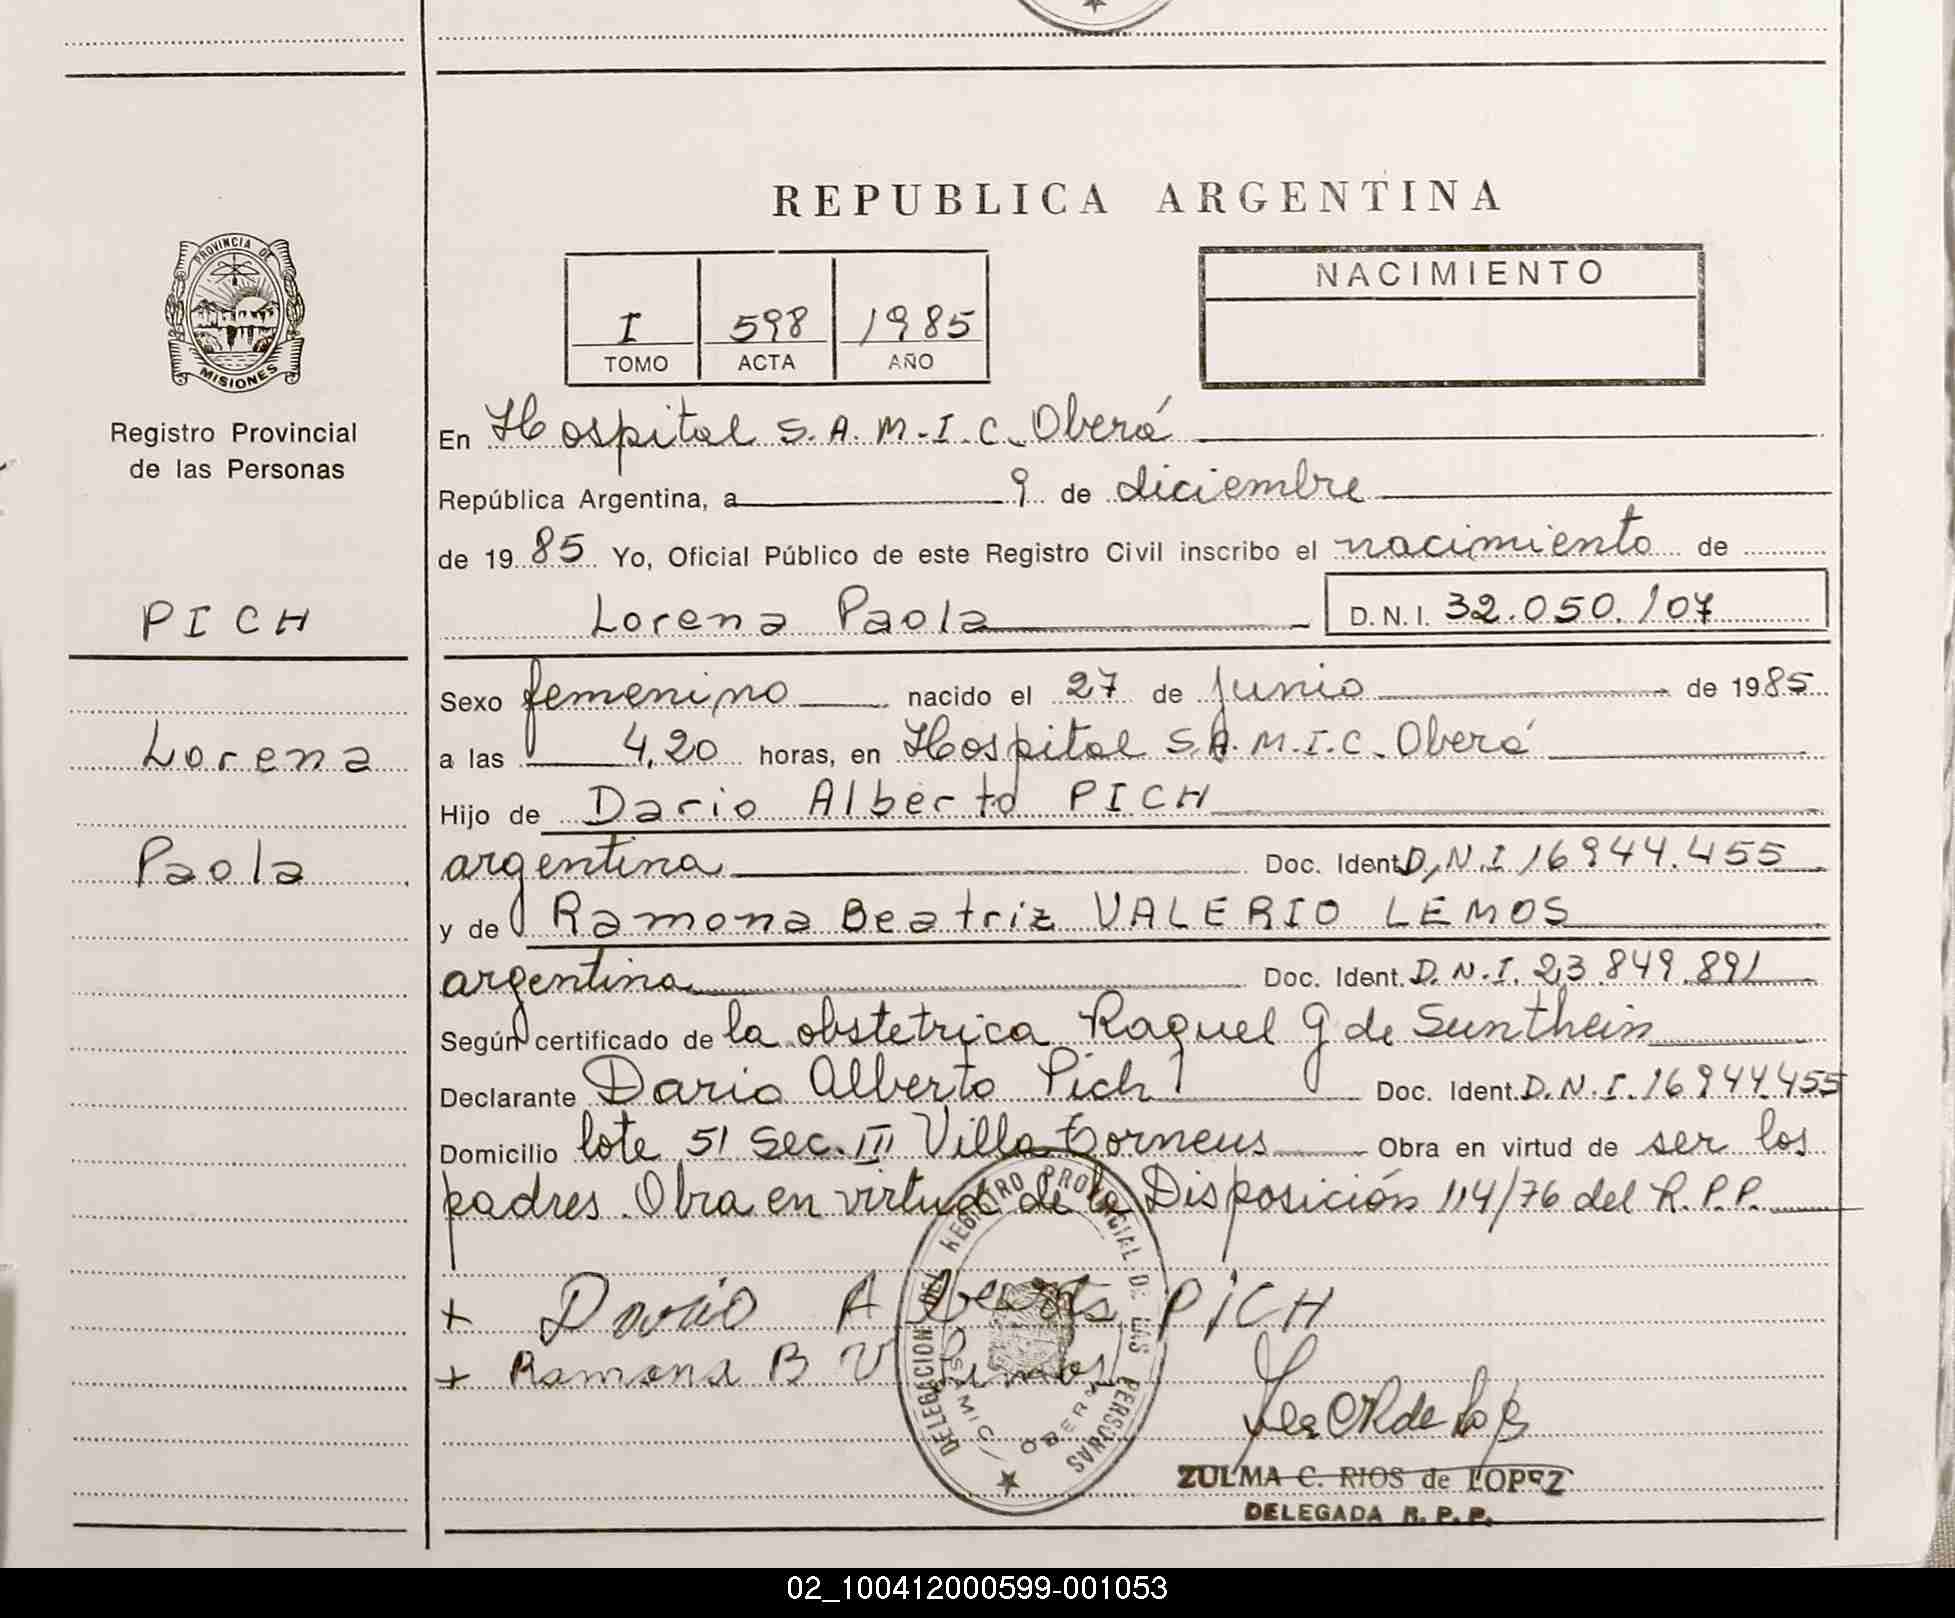 REPUBLICA ARGENTINA
PROVINCIA DE
MISIONES
Registro Provincial
de las Personas
PICH
Lorena
Paola
I 598 1985
TOMO ACTA AÑO
NACIMIENTO
En Hospital S.A.M.I.C. Oberá
República Argentina, a 9 de diciembre
de 1985 Yo, Oficial Público de este Registro Civil inscribo el nacimiento de
Lorena Paola D.N.I. 32.050.107
Sexo femenino nacido el 27 de junio de 1985
a las 4,20 horas, en Hospital S.A.M.I.C. Oberá
Hijo de Dario Alberto PICH
argentina Doc. Ident. D.N.I 16944.455
y de Ramona Beatriz VALERIO LEMOS
argentina Doc. Ident. D.N.I. 23.849.891
Según certificado de la obstetrica Raquel G de Sunthein
Declarante Dario Alberto Pich Doc. Ident. D.N.I. 16944.455
Domicilio lote 51 Sec. III Villa Obra en virtud de ser los
padres. Obra en virtud de la Disposición 114/76 del R.P.P.
+ Dario Alberto PICH
+ Ramona B V Lemos
DELEGACION DEL REGISTRO PROVINCIAL DE LAS PERSONAS
SAMIC OBERA
ZULMA C. RIOS de LOPEZ
DELEGADA R. P. P.
02_100412000599-001053